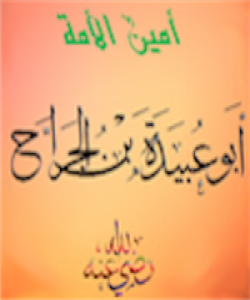 أمين الأمة
أبو عبيدة بن الجراح
رضي الله عنه